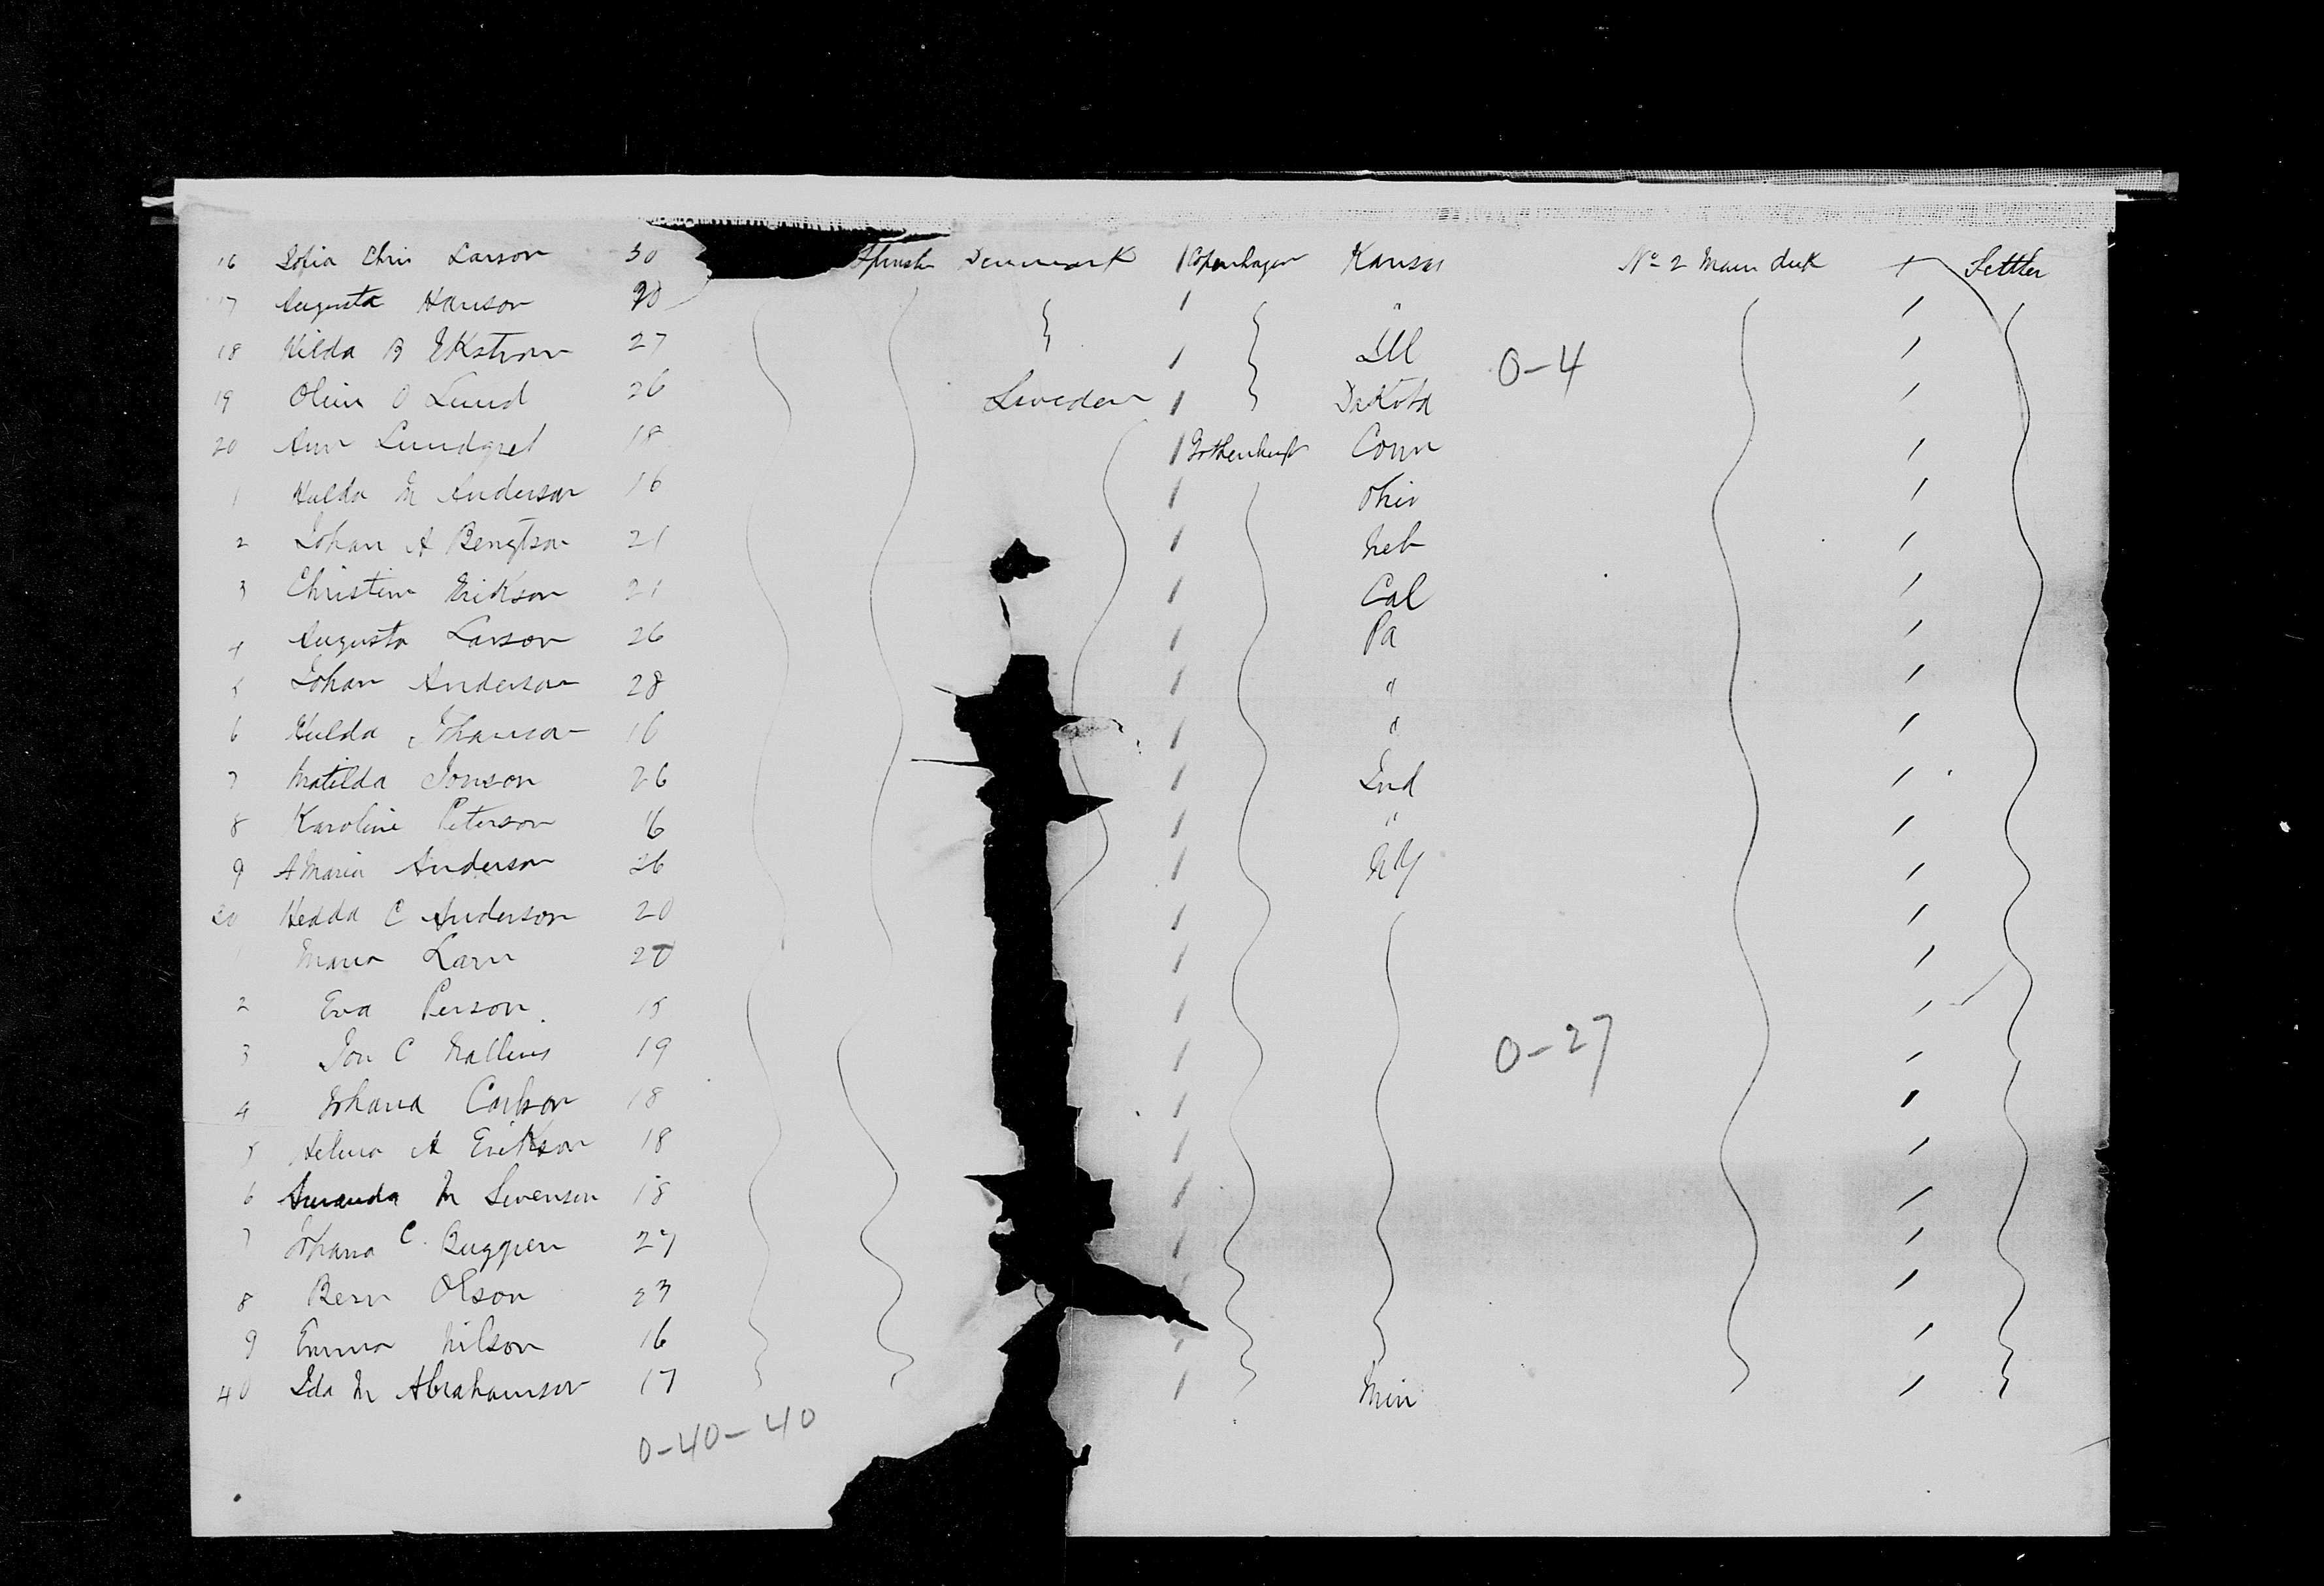 16 Sofia Chris Larson 30 Spinster Denmark 1 Copenhagen Kansas No 2 Main deck 1 Settler
17 Augusta Hanson 20 1 " 1
18 Hilda B Ekstrom 27 1 Ill 0-4 1
19 Olin O Lund 26 Sweden 1 Dakota 1
20 Ann Lundgret 18 1 Gothenburg Conn 1
1 Hulda M Anderson 16 1 Ohio 1
2 Johan A Bengtson 21 1 Neb 1
3 Christin Erikson 21 1 Cal 1
4 Augusta Larson 26 1 Pa 1
5 Johan Anderson 28 1 " 1
6 Hulda Johanson 16 1 " 1
7 Matilda Jonson 26 1 Ind 1
8 Karoline Peterson 16 1 " 1
9 A Maria Anderson 26 1 NY 1
30 Hedda C Anderson 20 1 1
1 Maria Larn 20 1 1
2 Eva Person 15 1 1
3 Jon C 19 1 0-27 1
4 Johana Carlson 18 1 1
5 Selma A Erikson 18 1 1
6 Amanda M Swenson 18 1 1
7 Johana C 27 1 1
8 Bern Olson 23 1
9 Emma Nilson 16 1 1
40 Ida M Abrahamson 17 1 Min 1
0-40-40